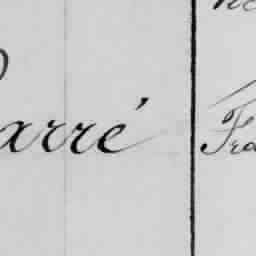 arré
Fra